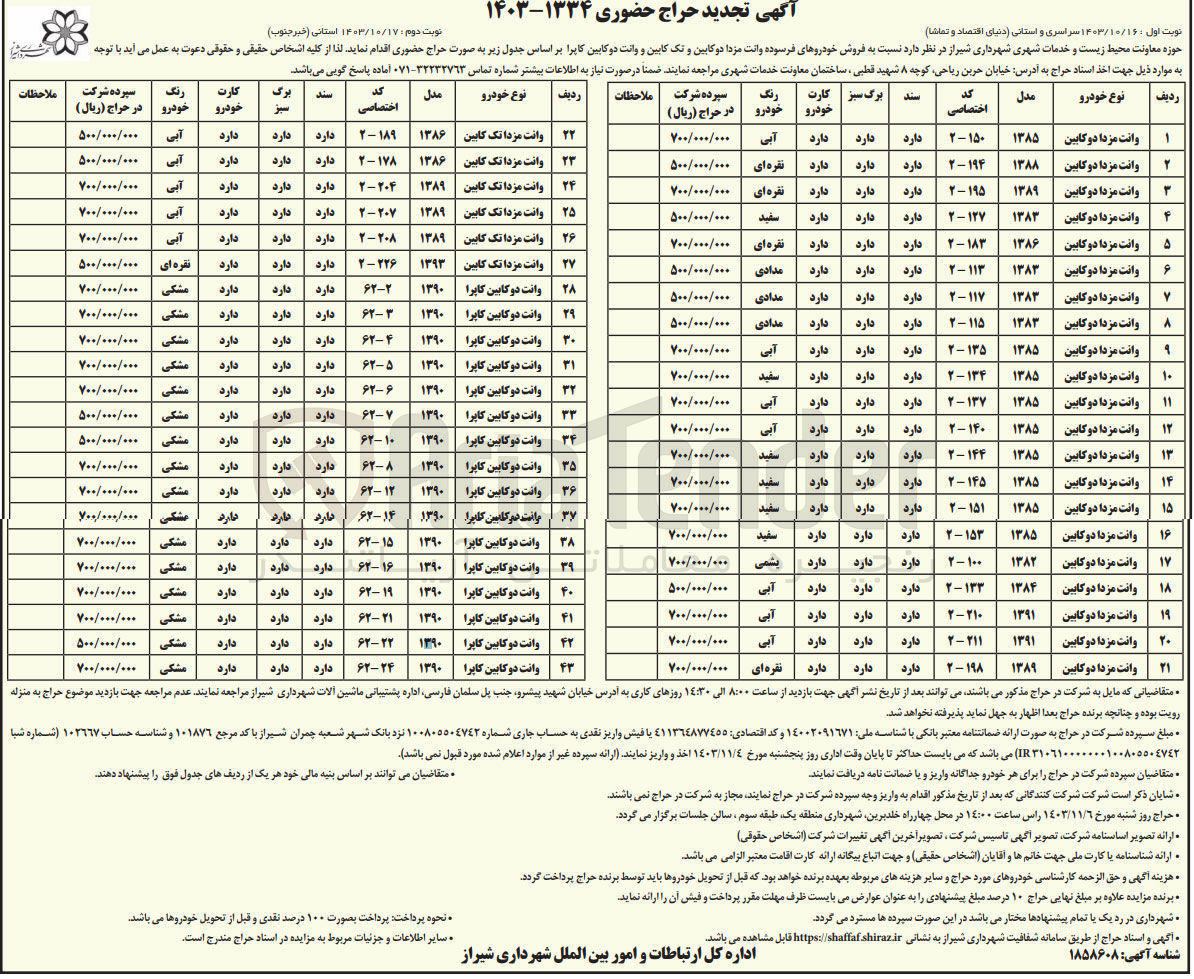 آگهی تجدید حراج حضوری ۱۳۳۴-۱۴۰۳
نوبت اول : ۱۴۰۳/۱۰/۱۶ سراسری و استانی (دنیای اقتصاد و تماشا)
نوبت دوم : ۱۴۰۳/۱۰/۱۷ استانی (خبرجنوب)
حوزه معاونت محیط زیست و خدمات شهری شهرداری شیراز در نظر دارد نسبت به فروش خودروهای فرسوده وانت مزدا دوکابین و تک کابین و وانت دوکابین کاپرا بر اساس جدول زیر به صورت حراج حضوری اقدام نماید. لذا از کلیه اشخاص حقیقی و حقوقی دعوت به عمل می آید با توجه
به موارد ذیل جهت اخذ اسناد حراج به آدرس: خیابان حربن ریاحی، کوچه ۸ شهید قطبی ، ساختمان معاونت خدمات شهری مراجعه نمایند. ضمناً درصورت نیاز به اطلاعات بیشتر شماره تماس ۳۲۲۳۲۷۶۳-۰۷۱ آماده پاسخ گویی می‌باشد.
ردیف نوع خودرو مدل کد اختصاصی سند برگ سبز کارت خودرو رنگ خودرو سپرده شرکت در حراج (ریال) ملاحظات
۱ وانت مزدا دوکابین ۱۳۸۵ ۱۵۰-۲ دارد دارد دارد آبی ۷۰۰/۰۰۰/۰۰۰
۲ وانت مزدا دوکابین ۱۳۸۸ ۱۹۴-۲ دارد دارد دارد نقره ای ۵۰۰/۰۰۰/۰۰۰
۳ وانت مزدا دوکابین ۱۳۸۹ ۱۹۵-۲ دارد دارد دارد نقره ای ۷۰۰/۰۰۰/۰۰۰
۴ وانت مزدا دوکابین ۱۳۸۳ ۱۲۷-۲ دارد دارد دارد سفید ۵۰۰/۰۰۰/۰۰۰
۵ وانت مزدا دوکابین ۱۳۸۶ ۱۸۳-۲ دارد دارد دارد نقره ای ۷۰۰/۰۰۰/۰۰۰
۶ وانت مزدا دوکابین ۱۳۸۳ ۱۱۳-۲ دارد دارد دارد مدادی ۵۰۰/۰۰۰/۰۰۰
۷ وانت مزدا دوکابین ۱۳۸۳ ۱۱۷-۲ دارد دارد دارد مدادی ۵۰۰/۰۰۰/۰۰۰
۸ وانت مزدا دوکابین ۱۳۸۳ ۱۱۵-۲ دارد دارد دارد مدادی ۵۰۰/۰۰۰/۰۰۰
۹ وانت مزدا دوکابین ۱۳۸۵ ۱۳۵-۲ دارد دارد دارد آبی ۷۰۰/۰۰۰/۰۰۰
۱۰ وانت مزدا دوکابین ۱۳۸۵ ۱۳۴-۲ دارد دارد دارد سفید ۷۰۰/۰۰۰/۰۰۰
۱۱ وانت مزدا دوکابین ۱۳۸۵ ۱۳۷-۲ دارد دارد دارد آبی ۷۰۰/۰۰۰/۰۰۰
۱۲ وانت مزدا دوکابین ۱۳۸۵ ۱۴۰-۲ دارد دارد دارد آبی ۷۰۰/۰۰۰/۰۰۰
۱۳ وانت مزدا دوکابین ۱۳۸۵ ۱۴۴-۲ دارد دارد دارد سفید ۷۰۰/۰۰۰/۰۰۰
۱۴ وانت مزدا دوکابین ۱۳۸۵ ۱۴۵-۲ دارد دارد دارد سفید ۷۰۰/۰۰۰/۰۰۰
۱۵ وانت مزدا دوکابین ۱۳۸۵ ۱۵۱-۲ دارد دارد دارد سفید ۷۰۰/۰۰۰/۰۰۰
۱۶ وانت مزدا دوکابین ۱۳۸۵ ۱۵۳-۲ دارد دارد دارد سفید ۷۰۰/۰۰۰/۰۰۰
۱۷ وانت مزدا دوکابین ۱۳۸۲ ۱۰۰-۲ دارد دارد دارد یشمی ۷۰۰/۰۰۰/۰۰۰
۱۸ وانت مزدا دوکابین ۱۳۸۴ ۱۳۳-۲ دارد دارد دارد آبی ۵۰۰/۰۰۰/۰۰۰
۱۹ وانت مزدا دوکابین ۱۳۹۱ ۲۱۰-۲ دارد دارد دارد آبی ۷۰۰/۰۰۰/۰۰۰
۲۰ وانت مزدا دوکابین ۱۳۹۱ ۲۱۱-۲ دارد دارد دارد آبی ۷۰۰/۰۰۰/۰۰۰
۲۱ وانت مزدا دوکابین ۱۳۸۹ ۱۹۸-۲ دارد دارد دارد نقره ای ۷۰۰/۰۰۰/۰۰۰
ردیف نوع خودرو مدل کد اختصاصی سند برگ سبز کارت خودرو رنگ خودرو سپرده شرکت در حراج (ریال) ملاحظات
۲۲ وانت مزدا تک کابین ۱۳۸۶ ۱۸۹-۲ دارد دارد دارد آبی ۵۰۰/۰۰۰/۰۰۰
۲۳ وانت مزدا تک کابین ۱۳۸۶ ۱۷۸-۲ دارد دارد دارد آبی ۵۰۰/۰۰۰/۰۰۰
۲۴ وانت مزدا تک کابین ۱۳۸۹ ۲۰۴-۲ دارد دارد دارد آبی ۷۰۰/۰۰۰/۰۰۰
۲۵ وانت مزدا تک کابین ۱۳۸۹ ۲۰۷-۲ دارد دارد دارد آبی ۷۰۰/۰۰۰/۰۰۰
۲۶ وانت مزدا تک کابین ۱۳۸۹ ۲۰۸-۲ دارد دارد دارد آبی ۷۰۰/۰۰۰/۰۰۰
۲۷ وانت مزدا تک کابین ۱۳۹۳ ۲۲۶-۲ دارد دارد دارد نقره ای ۵۰۰/۰۰۰/۰۰۰
۲۸ وانت دوکابین کاپرا ۱۳۹۰ ۲-۶۲ دارد دارد دارد مشکی ۷۰۰/۰۰۰/۰۰۰
۲۹ وانت دوکابین کاپرا ۱۳۹۰ ۳-۶۲ دارد دارد دارد مشکی ۷۰۰/۰۰۰/۰۰۰
۳۰ وانت دوکابین کاپرا ۱۳۹۰ ۴-۶۲ دارد دارد دارد مشکی ۷۰۰/۰۰۰/۰۰۰
۳۱ وانت دوکابین کاپرا ۱۳۹۰ ۵-۶۲ دارد دارد دارد مشکی ۷۰۰/۰۰۰/۰۰۰
۳۲ وانت دوکابین کاپرا ۱۳۹۰ ۶-۶۲ دارد دارد دارد مشکی ۷۰۰/۰۰۰/۰۰۰
۳۳ وانت دوکابین کاپرا ۱۳۹۰ ۷-۶۲ دارد دارد دارد مشکی ۵۰۰/۰۰۰/۰۰۰
۳۴ وانت دوکابین کاپرا ۱۳۹۰ ۱۰-۶۲ دارد دارد دارد مشکی ۵۰۰/۰۰۰/۰۰۰
۳۵ وانت دوکابین کاپرا ۱۳۹۰ ۸-۶۲ دارد دارد دارد مشکی ۷۰۰/۰۰۰/۰۰۰
۳۶ وانت دوکابین کاپرا ۱۳۹۰ ۱۲-۶۲ دارد دارد دارد مشکی ۷۰۰/۰۰۰/۰۰۰
۳۷ وانت دوکابین کاپرا ۱۳۹۰ ۱۴-۶۲ دارد دارد دارد مشکی ۷۰۰/۰۰۰/۰۰۰
۳۸ وانت دوکابین کاپرا ۱۳۹۰ ۱۵-۶۲ دارد دارد دارد مشکی ۷۰۰/۰۰۰/۰۰۰
۳۹ وانت دوکابین کاپرا ۱۳۹۰ ۱۶-۶۲ دارد دارد دارد مشکی ۷۰۰/۰۰۰/۰۰۰
۴۰ وانت دوکابین کاپرا ۱۳۹۰ ۱۹-۶۲ دارد دارد دارد مشکی ۷۰۰/۰۰۰/۰۰۰
۴۱ وانت دوکابین کاپرا ۱۳۹۰ ۲۱-۶۲ دارد دارد دارد مشکی ۷۰۰/۰۰۰/۰۰۰
۴۲ وانت دوکابین کاپرا ۱۳۹۰ ۲۲-۶۲ دارد دارد دارد مشکی ۵۰۰/۰۰۰/۰۰۰
۴۳ وانت دوکابین کاپرا ۱۳۹۰ ۲۴-۶۲ دارد دارد دارد مشکی ۷۰۰/۰۰۰/۰۰۰
AriaTender
زنجیره معاملاتی آریاتندر
• متقاضیانی که مایل به شرکت در حراج مذکور می باشند، می توانند بعد از تاریخ نشر آگهی جهت بازدید از ساعت ۸:۰۰ الی ۱۴:۳۰ روزهای کاری به آدرس خیابان شهید پیشرو، جنب پل سلمان فارسی، اداره پشتیبانی ماشین آلات شهرداری شیراز مراجعه نمایند. عدم مراجعه جهت بازدید موضوع حراج به منزله
رویت بوده و چنانچه برنده حراج بعدا اظهار به جهل نماید پذیرفته نخواهد شد.
• مبلغ سپرده شرکت در حراج به صورت ارائه ضمانتنامه معتبر بانکی با شناسه ملی: ۱۴۰۰۲۰۹۱۶۷۱ و کد اقتصادی: ۴۱۱۳۶۴۸۷۷۴۵۵ یا فیش واریز نقدی به حساب جاری شماره ۱۰۰۸۰۵۵۰۴۷۴۲ نزد بانک شهر شعبه چمران شیراز با کد مرجع ۱۰۱۸۷۶ و شناسه حساب ۱۰۲۶۶۷ (شماره شبا
IR۳۱۰۶۱۰۰۰۰۰۰۰۱۰۰۸۰۵۵۰۴۷۴۲) می باشد که می بایست حداکثر تا پایان وقت اداری روز پنجشنبه مورخ ۱۴۰۳/۱۱/۴ اخذ و واریز نمایند. (ارائه سپرده غیر از موارد اعلام شده مورد قبول نمی باشد).
• متقاضیان سپرده شرکت در حراج را برای هر خودرو جداگانه واریز و یا ضمانت نامه دریافت نمایند.
• متقاضیان می توانند بر اساس بنیه مالی خود هر یک از ردیف های جدول فوق را پیشنهاد دهند.
• شایان ذکر است شرکت شرکت کنندگانی که بعد از تاریخ مذکور اقدام به واریز وجه سپرده شرکت در حراج نمایند، مجاز به شرکت در حراج نمی باشند.
• حراج روز شنبه مورخ ۱۴۰۳/۱۱/۶ راس ساعت ۱۴:۰۰ در محل چهارراه خلدبرین، شهرداری منطقه یک، طبقه سوم ، سالن جلسات برگزار می گردد.
• ارائه تصویر اساسنامه شرکت، تصویر آگهی تاسیس شرکت ، تصویرآخرین آگهی تغییرات شرکت (اشخاص حقوقی)
• ارائه شناسنامه یا کارت ملی جهت خانم ها و آقایان (اشخاص حقیقی) و جهت اتباع بیگانه ارائه کارت اقامت معتبر الزامی می باشد.
• هزینه آگهی و حق الزحمه کارشناسی خودروهای مورد حراج و سایر هزینه های مربوطه بعهده برنده خواهد بود. که قبل از تحویل خودروها باید توسط برنده حراج پرداخت گردد.
• برنده مزایده علاوه بر مبلغ نهایی حراج ۱۰ درصد مبلغ پیشنهادی را به عنوان عوارض می بایست ظرف مهلت مقرر پرداخت و فیش آن را ارائه نماید.
• شهرداری در رد یک یا تمام پیشنهادها مختار می باشد در این صورت سپرده ها مسترد می گردد.
• نحوه پرداخت: پرداخت بصورت ۱۰۰ درصد نقدی و قبل از تحویل خودروها می باشد.
• آگهی و اسناد حراج از طریق سامانه شفافیت شهرداری شیراز به نشانی https://shaffaf.shiraz.ir قابل مشاهده می باشد.
• سایر اطلاعات و جزئیات مربوط به مزایده در اسناد حراج مندرج است.
شناسه آگهی: ۱۸۵۸۶۰۸
اداره کل ارتباطات و امور بین الملل شهرداری شیراز